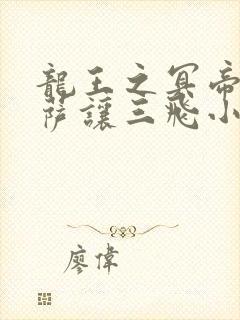 龍王之冥帝
薩讓三飛小
廖偉